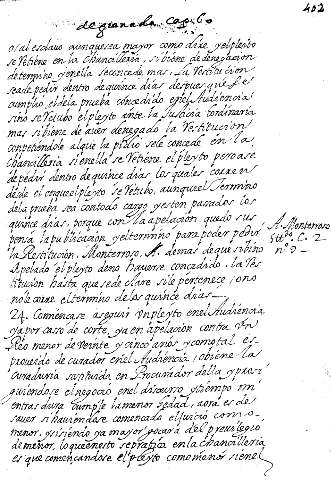 de granada Cap. 60
402
o, sal esclavo aunque sea mayor como dize, y el pleyto
se retiene en la Chancilleria, si biene de denegacion
de termino, y en ella se concede mas. La restitucion
se a de pedir dentro de quinçe dias despues que se
cumplio el de la prueba concedido en el Audiencia
sino se recibo el pleyto ante la Justicia ordinaria
mas si biene de aver denegado la restitucion
competiendole al que la pidio se le concede en la
Chancilleria si en ella se retiene el pleyto pero a se
de pedir dentro de quinçe dias los quales corren
desde el en que el pleyto se recibo, aunque el termino
de la prueba sea contado largo y esten pasados los
quinçe dias, porque con la apelacion quedo sus
pensa la publicacion y el termino para poder pedir
la Restitucion. Monterroso, A. demas de que si bino
Apelado el pleyto de no haverse concedido la res
titucion hasta que se declare si le pertenece o no
no le corre el termino de los quinçe dias
A. Monterroso
C. 2
n. 9
24. Comencase a seguir un pleyto en el Audiencia
ya por caso de corte, ya en apelacion contra un
Reo menor de veinte y cinco años y como tal es
proveido de curador en el Audiencia, o biene la
curaduria sostituida en Procurador della y prosi
guiendose el negocio en el discurso y tiempo mi
entras dura cumple la menor hedad, aora es de
saver si haviendose comencado el juicio con
menor, y siendo ya mayor goçará del previlegio
de menor, lo que en esto se pratica en la chancilleria
es que comencandose el pleyto como menor siene